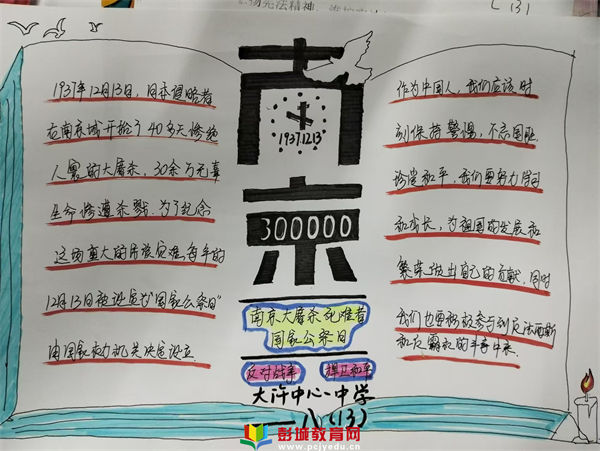 1937年12月13日，日本侵略者
在南京城开始了40多天惨绝
人寰的大屠杀，30余万无辜
生命惨遭杀戮，为了纪念
这场重大的民族灾难，每年的
12月13日被设为"国家公祭日"
由国家权力机关决定设立
南
1937.12.13
京
300000
南京大屠杀死难者
国家公祭日
反对战争 捍卫和平
大许中心中学
八（13）
作为中国人，我们应该时
刻保持警惕，不忘国耻
珍爱和平，我们要努力学习
和成长，为祖国的发展和
繁荣做出自己的贡献，同时
我们也要积极参与到反法西斯
和反霸权的斗争中来
彭城教育网
www.pcjyedu.cn